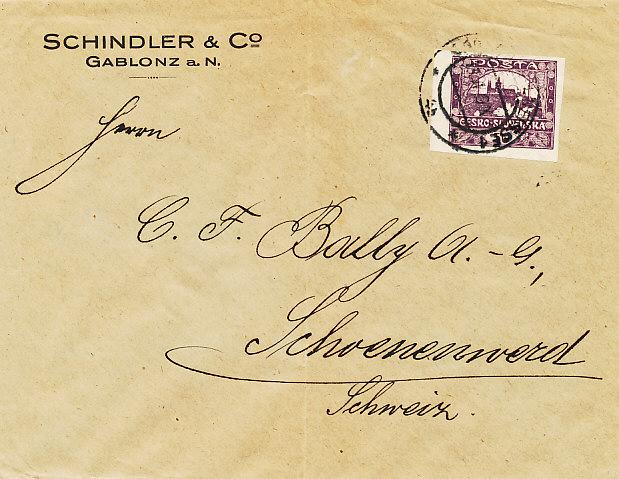 SCHINDLER & Co
GABLONZ a. N.
POSTA
ČESKO-SLOVENSKÁ
Herrn
C. F. Bally A.-G.,
Schoenenwerd
Schweiz.